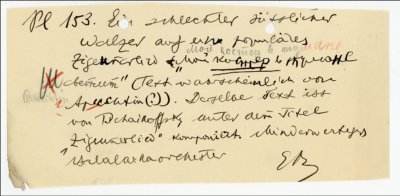 Pl 153. Ein schlechter süsslicher
Walzer auf ein populäres
Zigeunerlied "Мой костер в тумане
светит" (Text warscheinlich von
Apuchtin (?)). Derselbe Text ist
von Tschaikoffsky unter dem Titel
"Zigeunerlied" komponiert. Minderwertiges
Balalaikaorchester